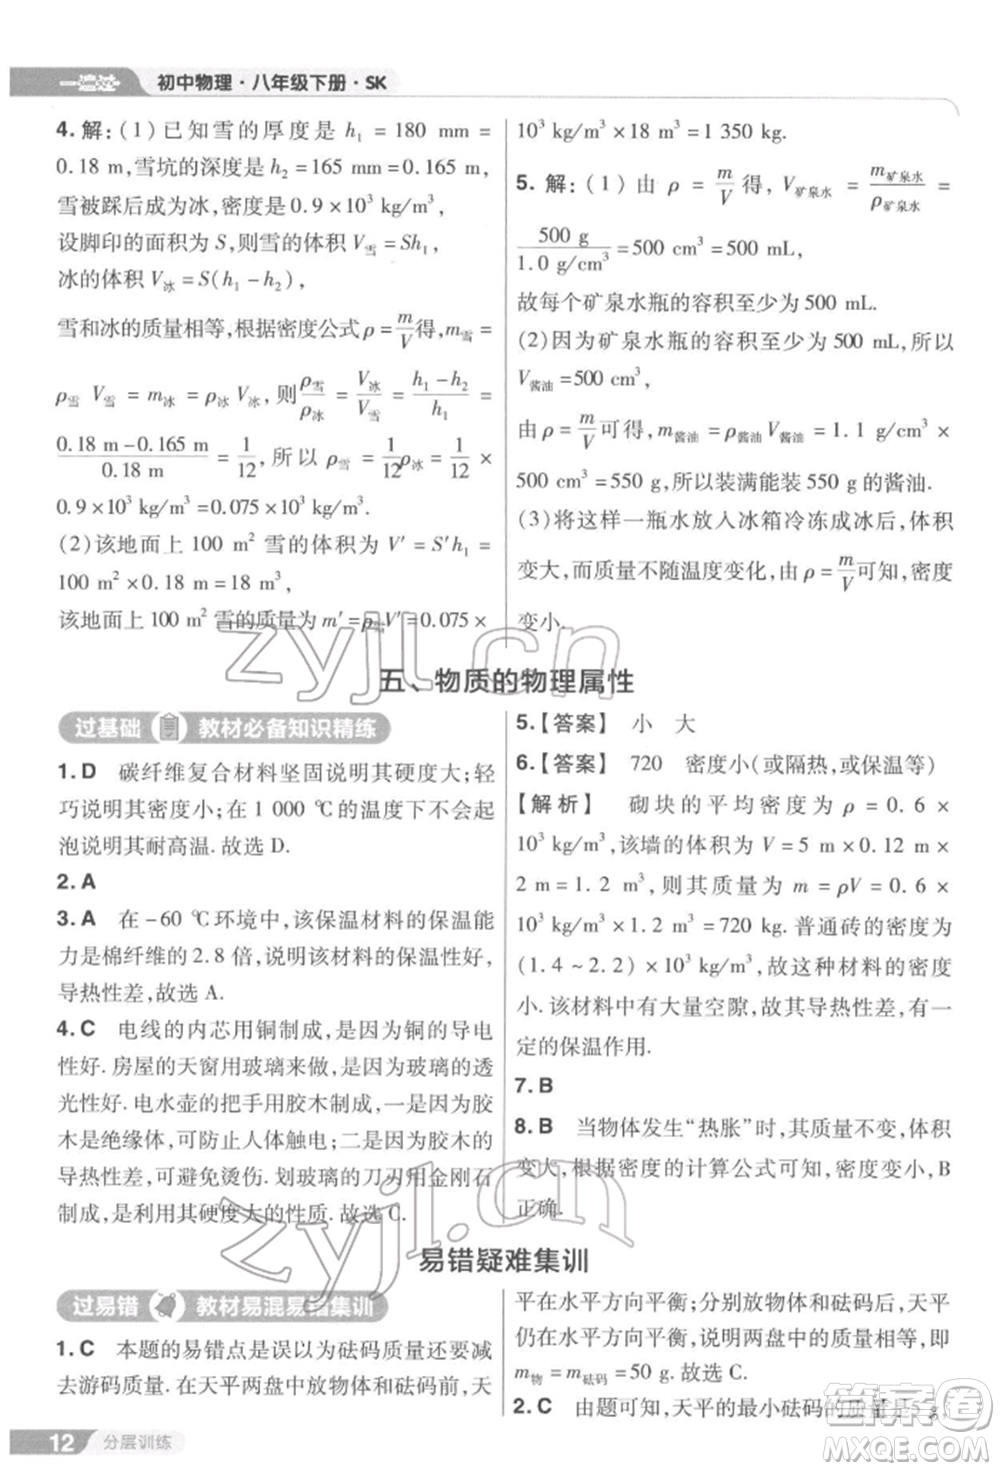 一遍过 初中物理·八年级下册·SK
4. 解:(1)已知雪的厚度是 h₁ = 180 mm =
0.18 m,雪坑的深度是 h₂ = 165 mm = 0.165 m,
雪被踩后成为冰,密度是 0.9 × 10³ kg/m³,
设脚印的面积为 S,则雪的体积 V雪 = Sh₁,
冰的体积 V冰 = S(h₁ - h₂),
雪和冰的质量相等,根据密度公式 ρ = m/V 得,m雪 =
ρ雪 V雪 = m冰 = ρ冰 V冰,则 ρ雪/ρ冰 = V冰/V雪 = (h₁ - h₂)/h₁ =
(0.18 m - 0.165 m)/0.18 m = 1/12,所以 ρ雪 = 1/12 ρ冰 = 1/12 ×
0.9 × 10³ kg/m³ = 0.075 × 10³ kg/m³.
(2)该地面上 100 m² 雪的体积为 V′ = S′h₁ =
100 m² × 0.18 m = 18 m³,
该地面上 100 m² 雪的质量为 m′ = ρ雪 V′ = 0.075 ×
10³ kg/m³ × 18 m³ = 1 350 kg.
5. 解:(1)由 ρ = m/V 得,V矿泉水 = m矿泉水/ρ矿泉水 =
500 g/1.0 g/cm³ = 500 cm³ = 500 mL,
故每个矿泉水瓶的容积至少为 500 mL.
(2)因为矿泉水瓶的容积至少为500 mL,所以
V酱油 = 500 cm³,
由 ρ = m/V 可得,m酱油 = ρ酱油 V酱油 = 1.1 g/cm³ ×
500 cm³ = 550 g,所以装满能装 550 g 的酱油.
(3)将这样一瓶水放入冰箱冷冻成冰后,体积
变大,而质量不随温度变化,由 ρ = m/V 可知,密度
变小.
五、物质的物理属性
过基础 教材必备知识精练
1. D 碳纤维复合材料坚固说明其硬度大;轻
巧说明其密度小;在 1 000 ℃的温度下不会起
泡说明其耐高温.故选 D.
2. A
3. A 在 -60 ℃环境中,该保温材料的保温能
力是棉纤维的 2.8 倍,该材料的保温性好,
导热性差,故选 A.
4. C 电线的内芯用铜制成,是因为铜的导电
性好.房屋的天窗用玻璃来做,是因为玻璃的透
光性好.电水壶的把手用胶木制成,一是因为胶
木是绝缘体,可防止人体触电;二是胶木的
导热性差,可避免烫伤.划玻璃的刀刃用金刚石
制成,是利用其硬度大的性质.故选 C.
5.【答案】 小 大
6.【答案】 720 密度小(或隔热,或保温等)
【解析】 砌块的平均密度为 ρ = 0.6 ×
10³ kg/m³,该墙的体积为 V = 5 m × 0.12 m ×
2 m = 1.2 m³,则其质量为 m = ρV = 0.6 ×
10³ kg/m³ × 1.2 m³ = 720 kg.普通砖的密度为
(1.4 ~ 2.2) × 10³ kg/m³,故这种材料的密度
小.该材料中有大量空隙,故其导热性差,有一
定的保温作用.
7. B
8. B 当物体发生“热胀”时,其质量不变,体积
变大,根据密度的计算公式可知,密度变小,B
正确.
易错疑难集训
过易错 教材易混易错集训
1. C 本题的易错点是误以为砝码质量还要减
去游码质量.在天平两盘中放物体和砝码前,天
平在水平方向平衡;分别放物体和砝码后,天平
仍在水平方向平衡,说明两盘中的质量相等,即
m物 = m砝码 = 50 g.故选 C.
2. C 由题可知,天平的最小砝码的质量是5 g,
12 分层训练
zyjl.cn
zyjl.cn
答案圈
MXQE.COM